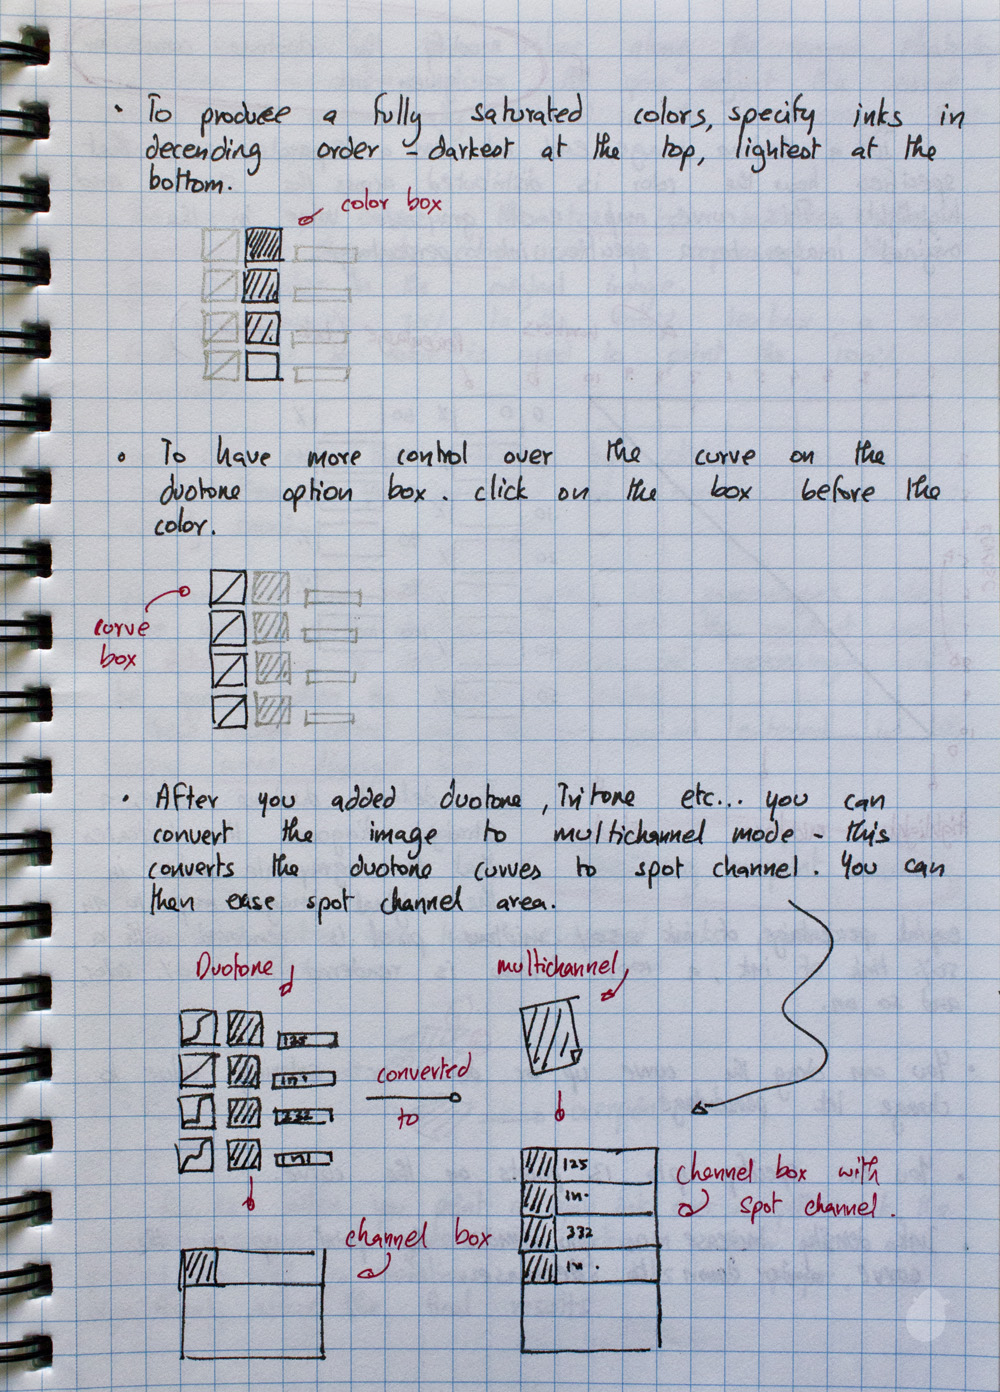 · To produce a fully saturated colors, specify inks in
decending order - darkest at the top, lightest at the
bottom.
color box
· To have more control over the curve on the
duotone option box. click on the box before the
color.
curve
box
· After you added duotone, Tritone etc... you can
convert the image to multichannel mode - this
converts the duotone curves to spot channel. You can
then ease spot channel area.
Duotone
multichannel
125
in.
332
in
converted
to
125
in.
332
in.
channel box with
spot channel.
channel box